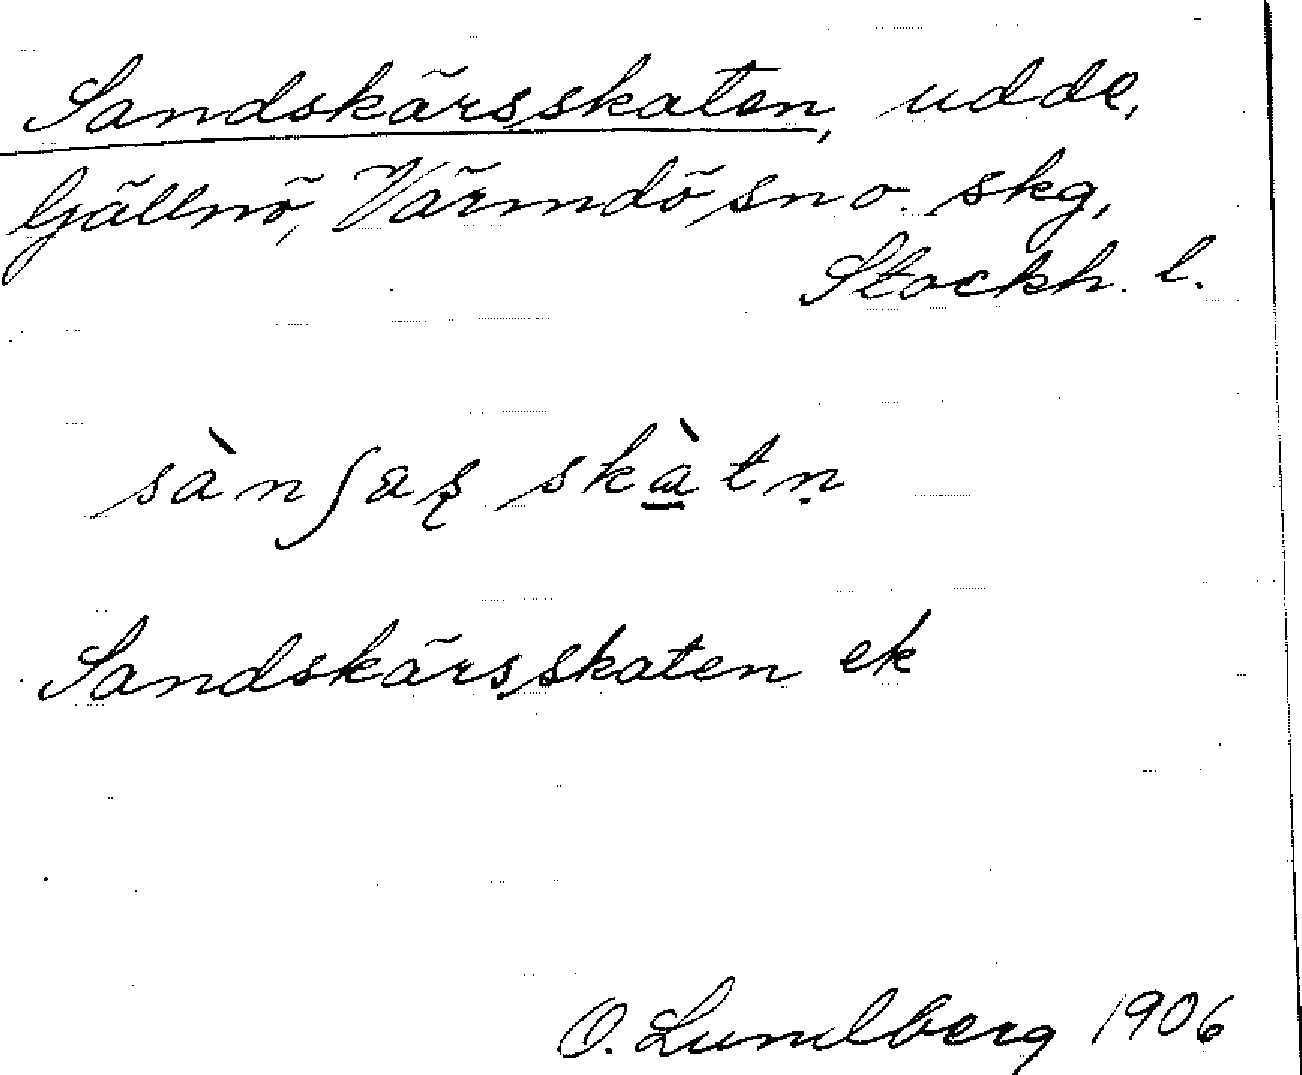 Sandskärsskaten, udde,
Gällnö, Värmdö sn o. skg,
Stockh. l.
sànʃaʂ skà̠tṇ
Sandskärsskaten ek
O. Lundberg 1906